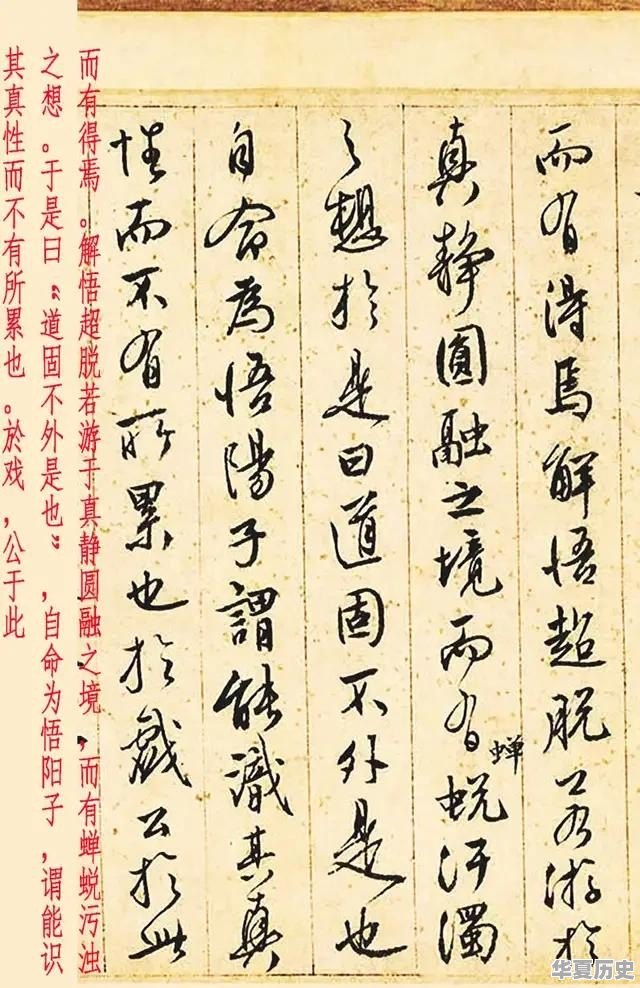 而有得焉解悟超脱若游於
真静圓融之境而有蝉蜕汙濁
之想於是曰道固不外是也
自命為悟陽子謂能識其真
性而不有所累也於戲公於此
而有得焉。解悟超脱若游于真静圆融之境,而有蝉蜕污浊
之想。于是曰:“道固不外是也”,自命为悟阳子,谓能识
其真性而不有所累也。於戏,公于此
华夏历史